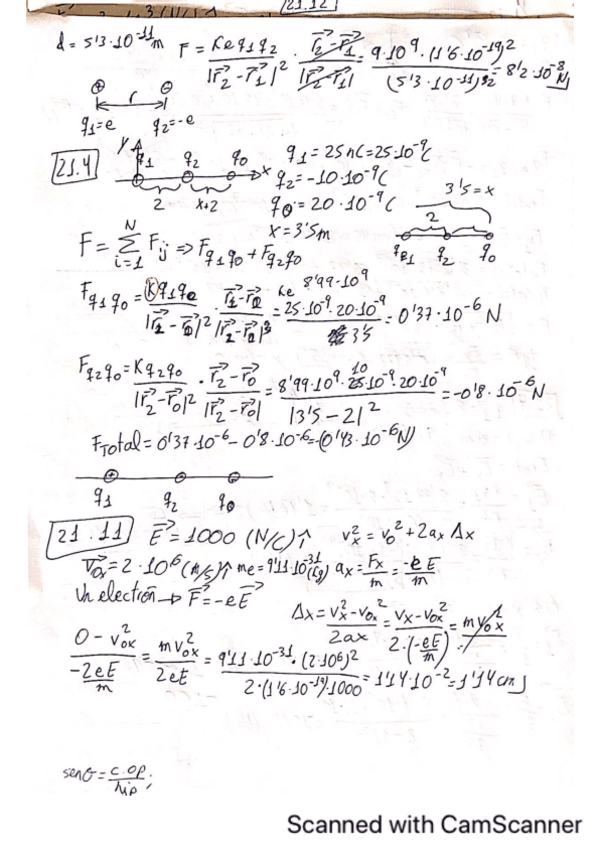 21.12
d = 5'3·10^-11 m F = Ke q1 q2 / |r2 - r1|^2 · r2 - r1 / |r2 - r1| = 9·10^9 · (1'6·10^-19)^2 / (5'3·10^-11)^2 = 8'2·10^-8 N
⊕ ⊖
r
q1=e q2=-e
21.4 y q1 q2 q0 x q1 = 25nC=25·10^-9 C
q2=-10·10^-9 C
2 x+2 q0 = 20·10^-9 C 3'5=x
x=3'5m 2
F = Σ_{i=1}^{N} Fij => Fq1q0 + Fq2q0 q1 q2 q0
Ke 8'99·10^9
Fq1q0 = Kq1q0 / |r2 - r0|^2 · r1 - r0 / |r2 - r0|^3 = 25·10^-9 · 20·10^-9 / 3'5 = 0'37·10^-6 N
Fq2q0 = Kq2q0 / |r2 - r0|^2 · r2 - r0 / |r2 - r0| = 8'99·10^9 · 10·10^-9 · 20·10^-9 / |3'5 - 2|^2 = -0'8·10^-6 N
FTotal = 0'37·10^-6 - 0'8·10^-6 = -(0'43·10^-6 N)
q1 q2 q0
21.11 E = 1000 (N/C)↑ vx^2 = v0^2 + 2ax Δx
v0x = 2·10^6 (m/s)↑ me = 9'11·10^-31 (kg) ax = Fx/m = -eE/m
Un electron → F = -eE
Δx = vx^2 - v0x^2 / 2ax = vx - v0x^2 / 2·(-eE/m) = m v0x^2
0 - v0x^2 / -2eE/m = m v0x^2 / 2eE = 9'11·10^-31 · (2·10^6)^2 / 2·(1'6·10^-19)·1000 = 1'14·10^-2 = 1'14 cm
senθ = c.op / hip ;
Scanned with CamScanner